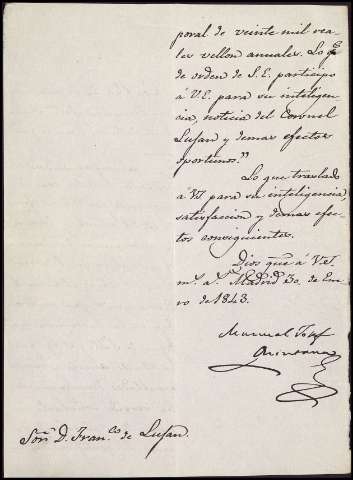 poral de veinte mil rea-
les vellon anuales. Lo q.e
de orden de S.E. participo
á V.E. para su inteligen-
cia, noticia del Coronel
Lujan y demas efectos
oportunos."
Lo que traslado
á VS para su inteligencia,
satisfaccion y demas efec-
tos consiguientes.
Dios gue. á V.S.
m.s a.s Madrid 30 de Ene-
ro de 1843.
Manuel José
Quintana
Sor. D. Fran.co de Lujan.